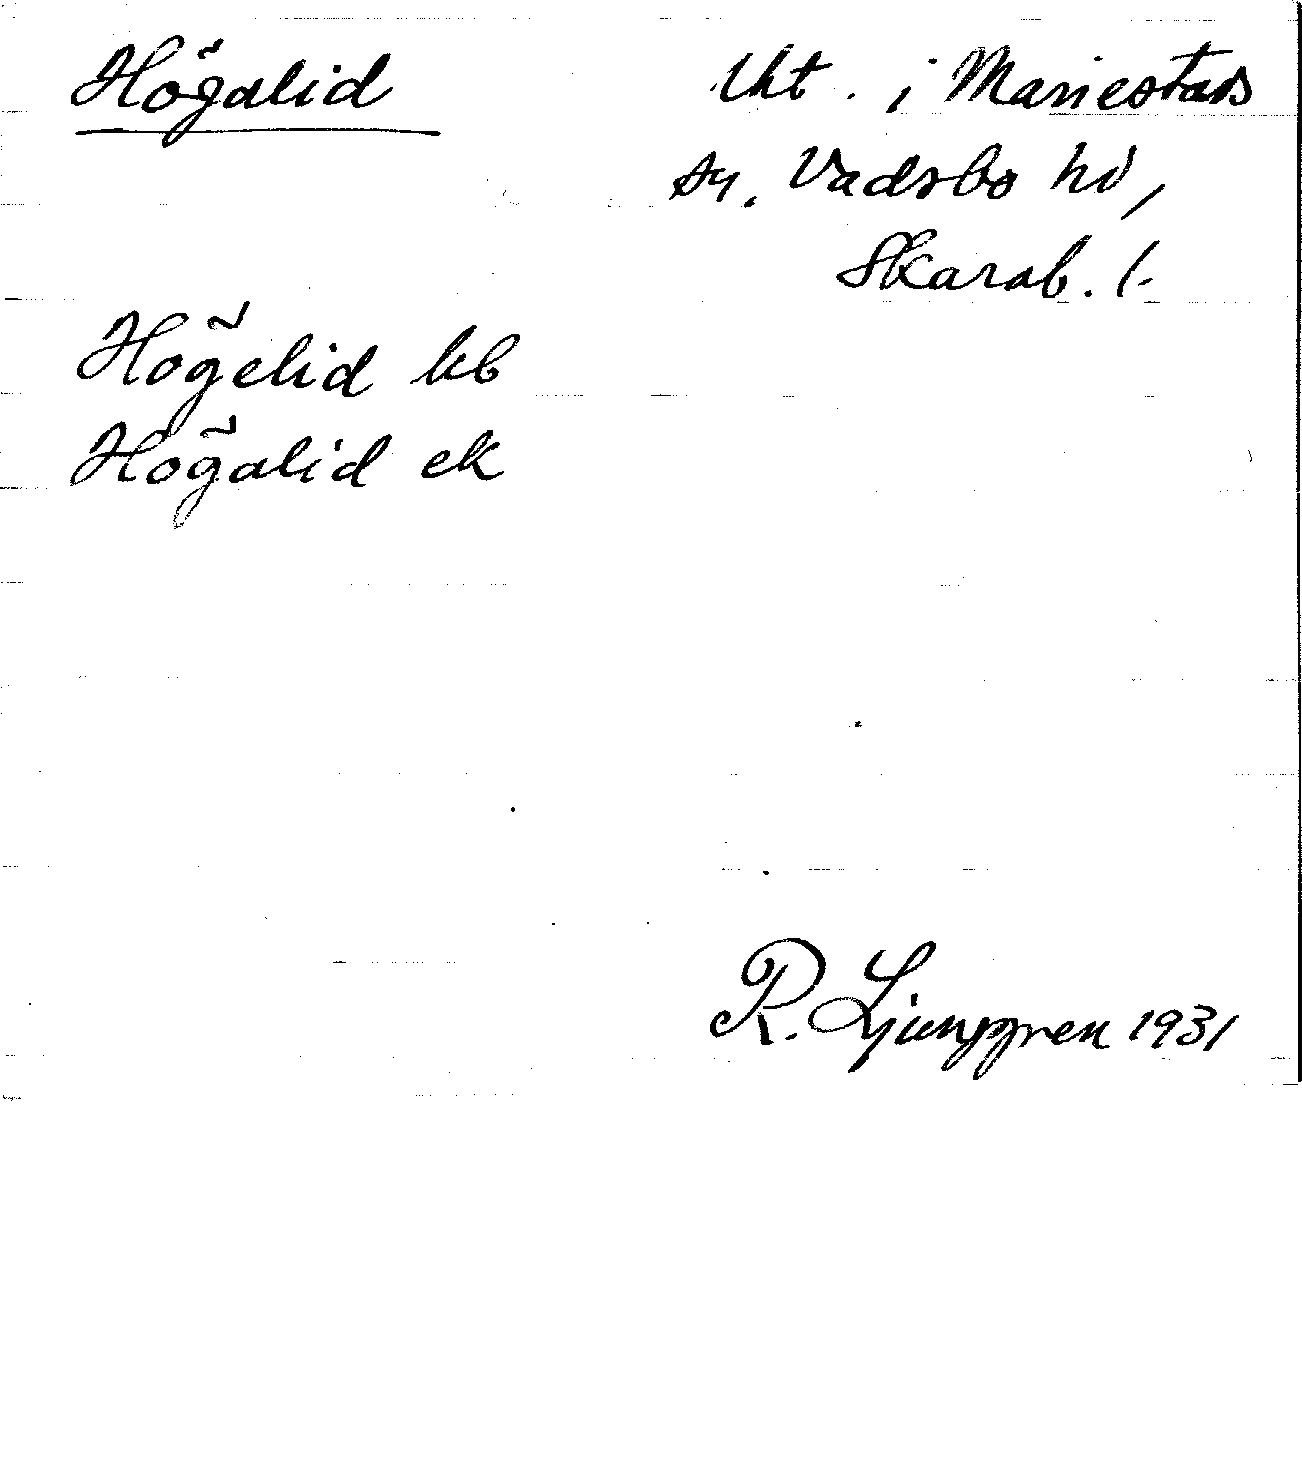 Högalid
Lht. i Mariestads
sn. Vadsbo hd,
Skarab. l.
Högelid kb
Högalid ek
R. Ljunggren 1931